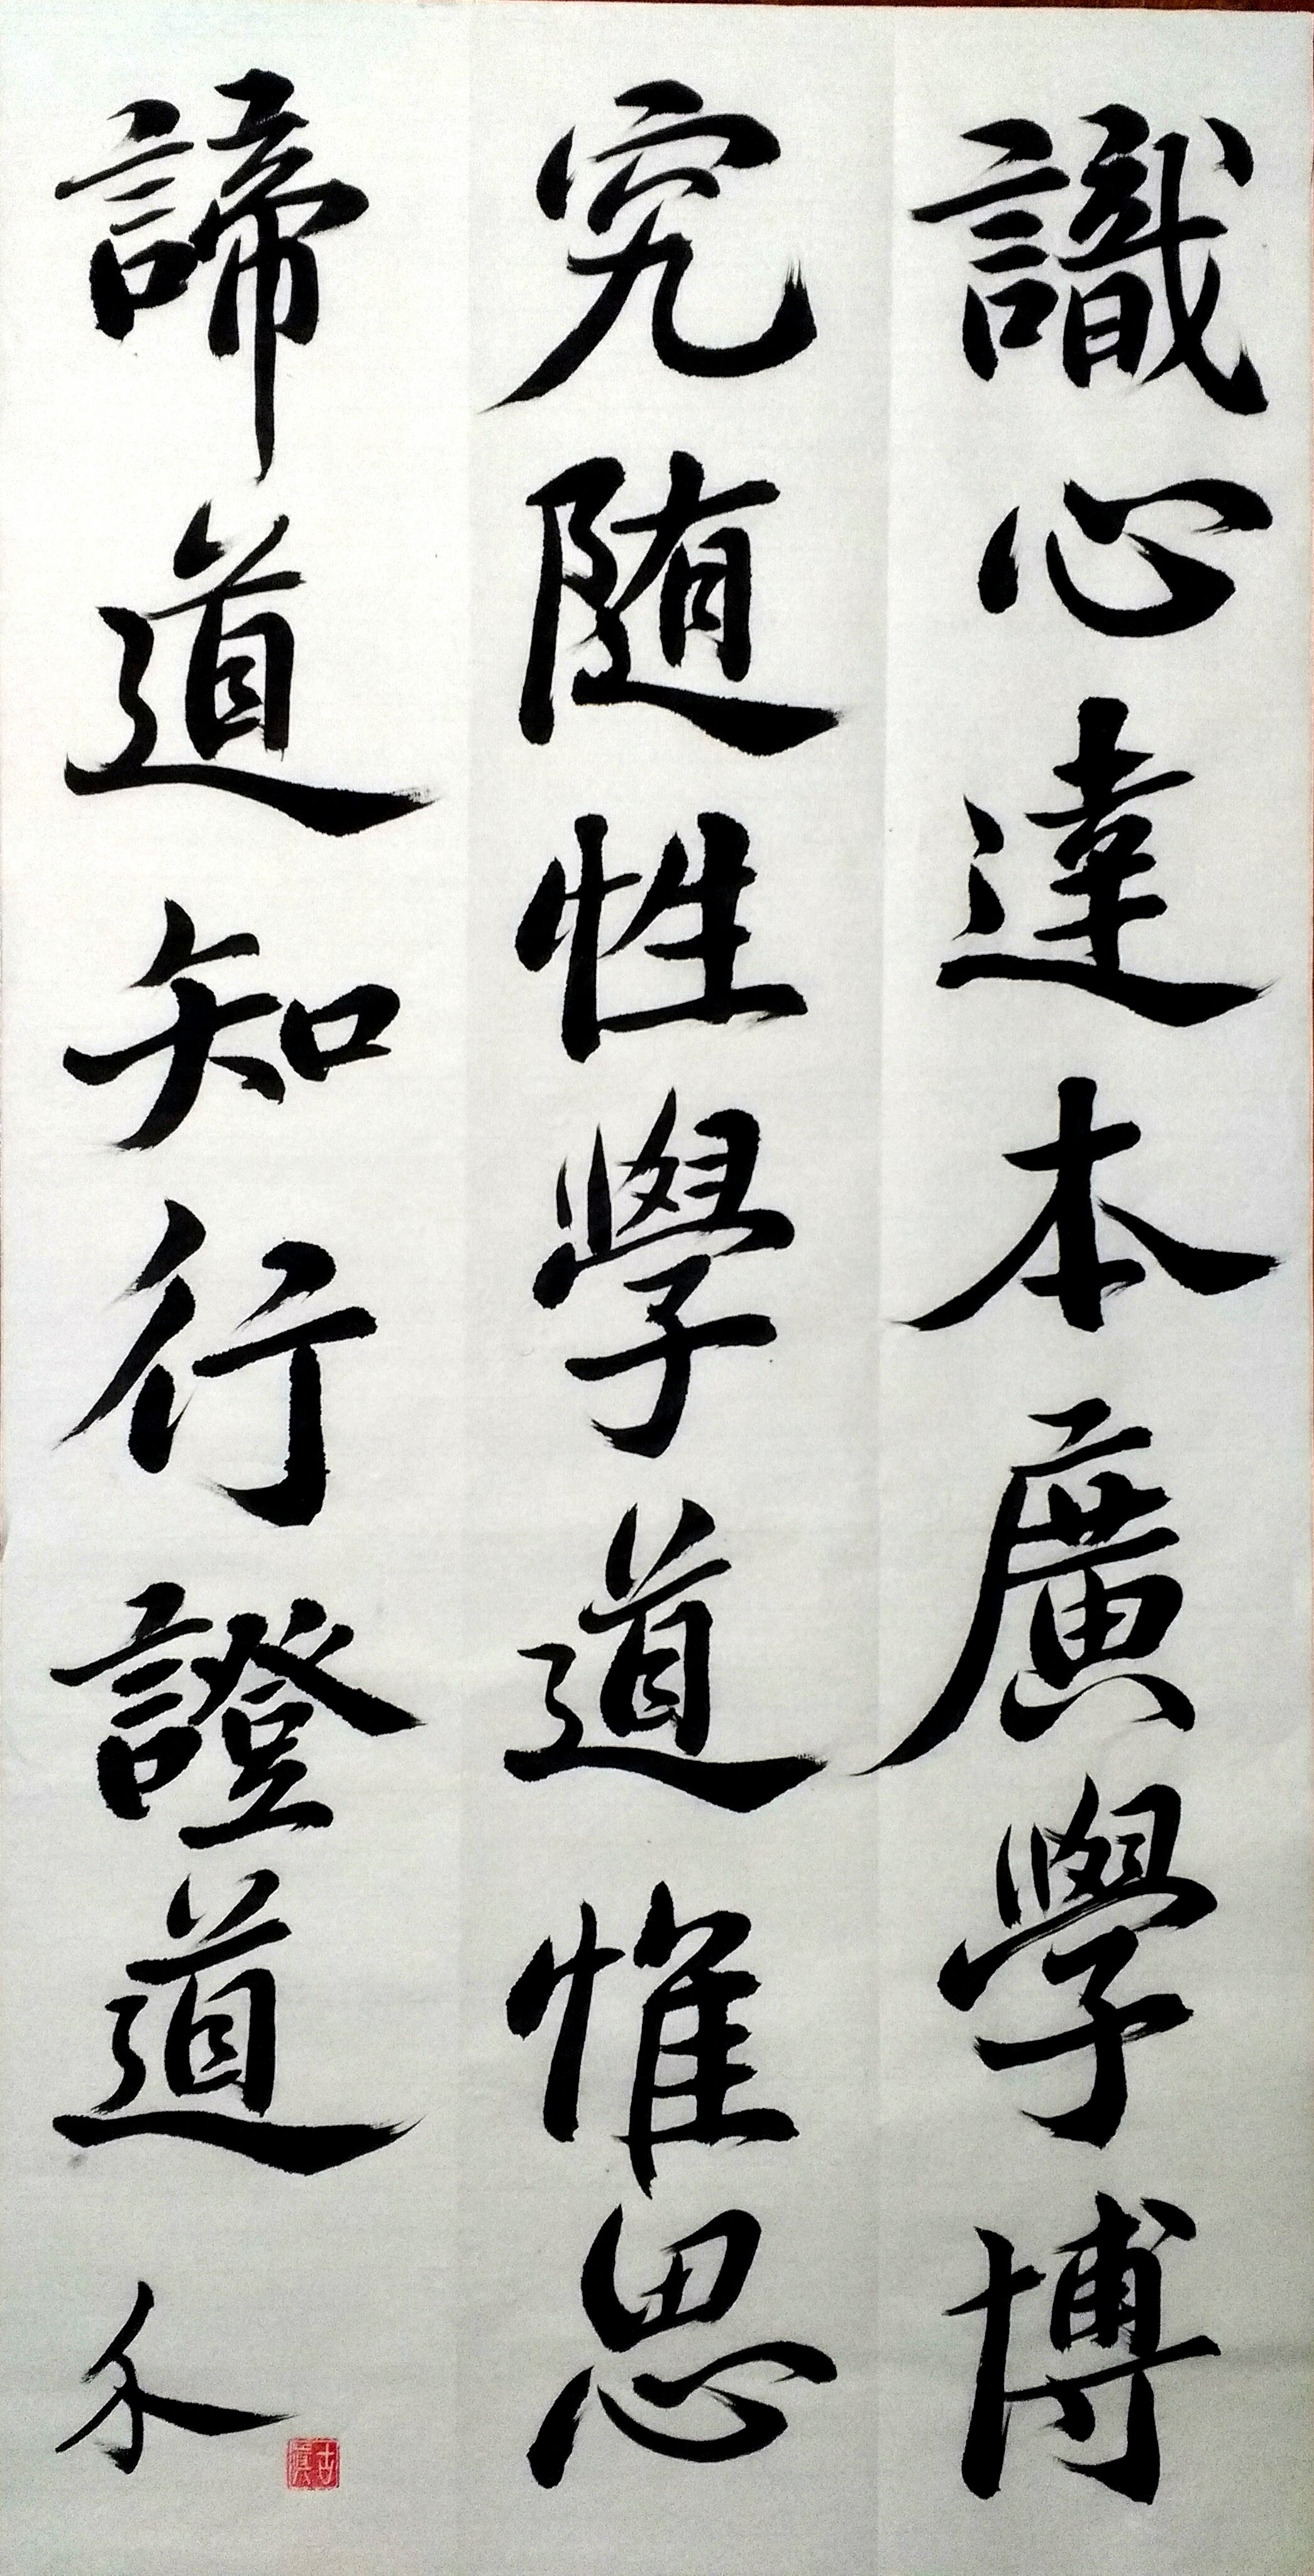 識心達本廣學博
究随性學道惟思
諦道知行證道